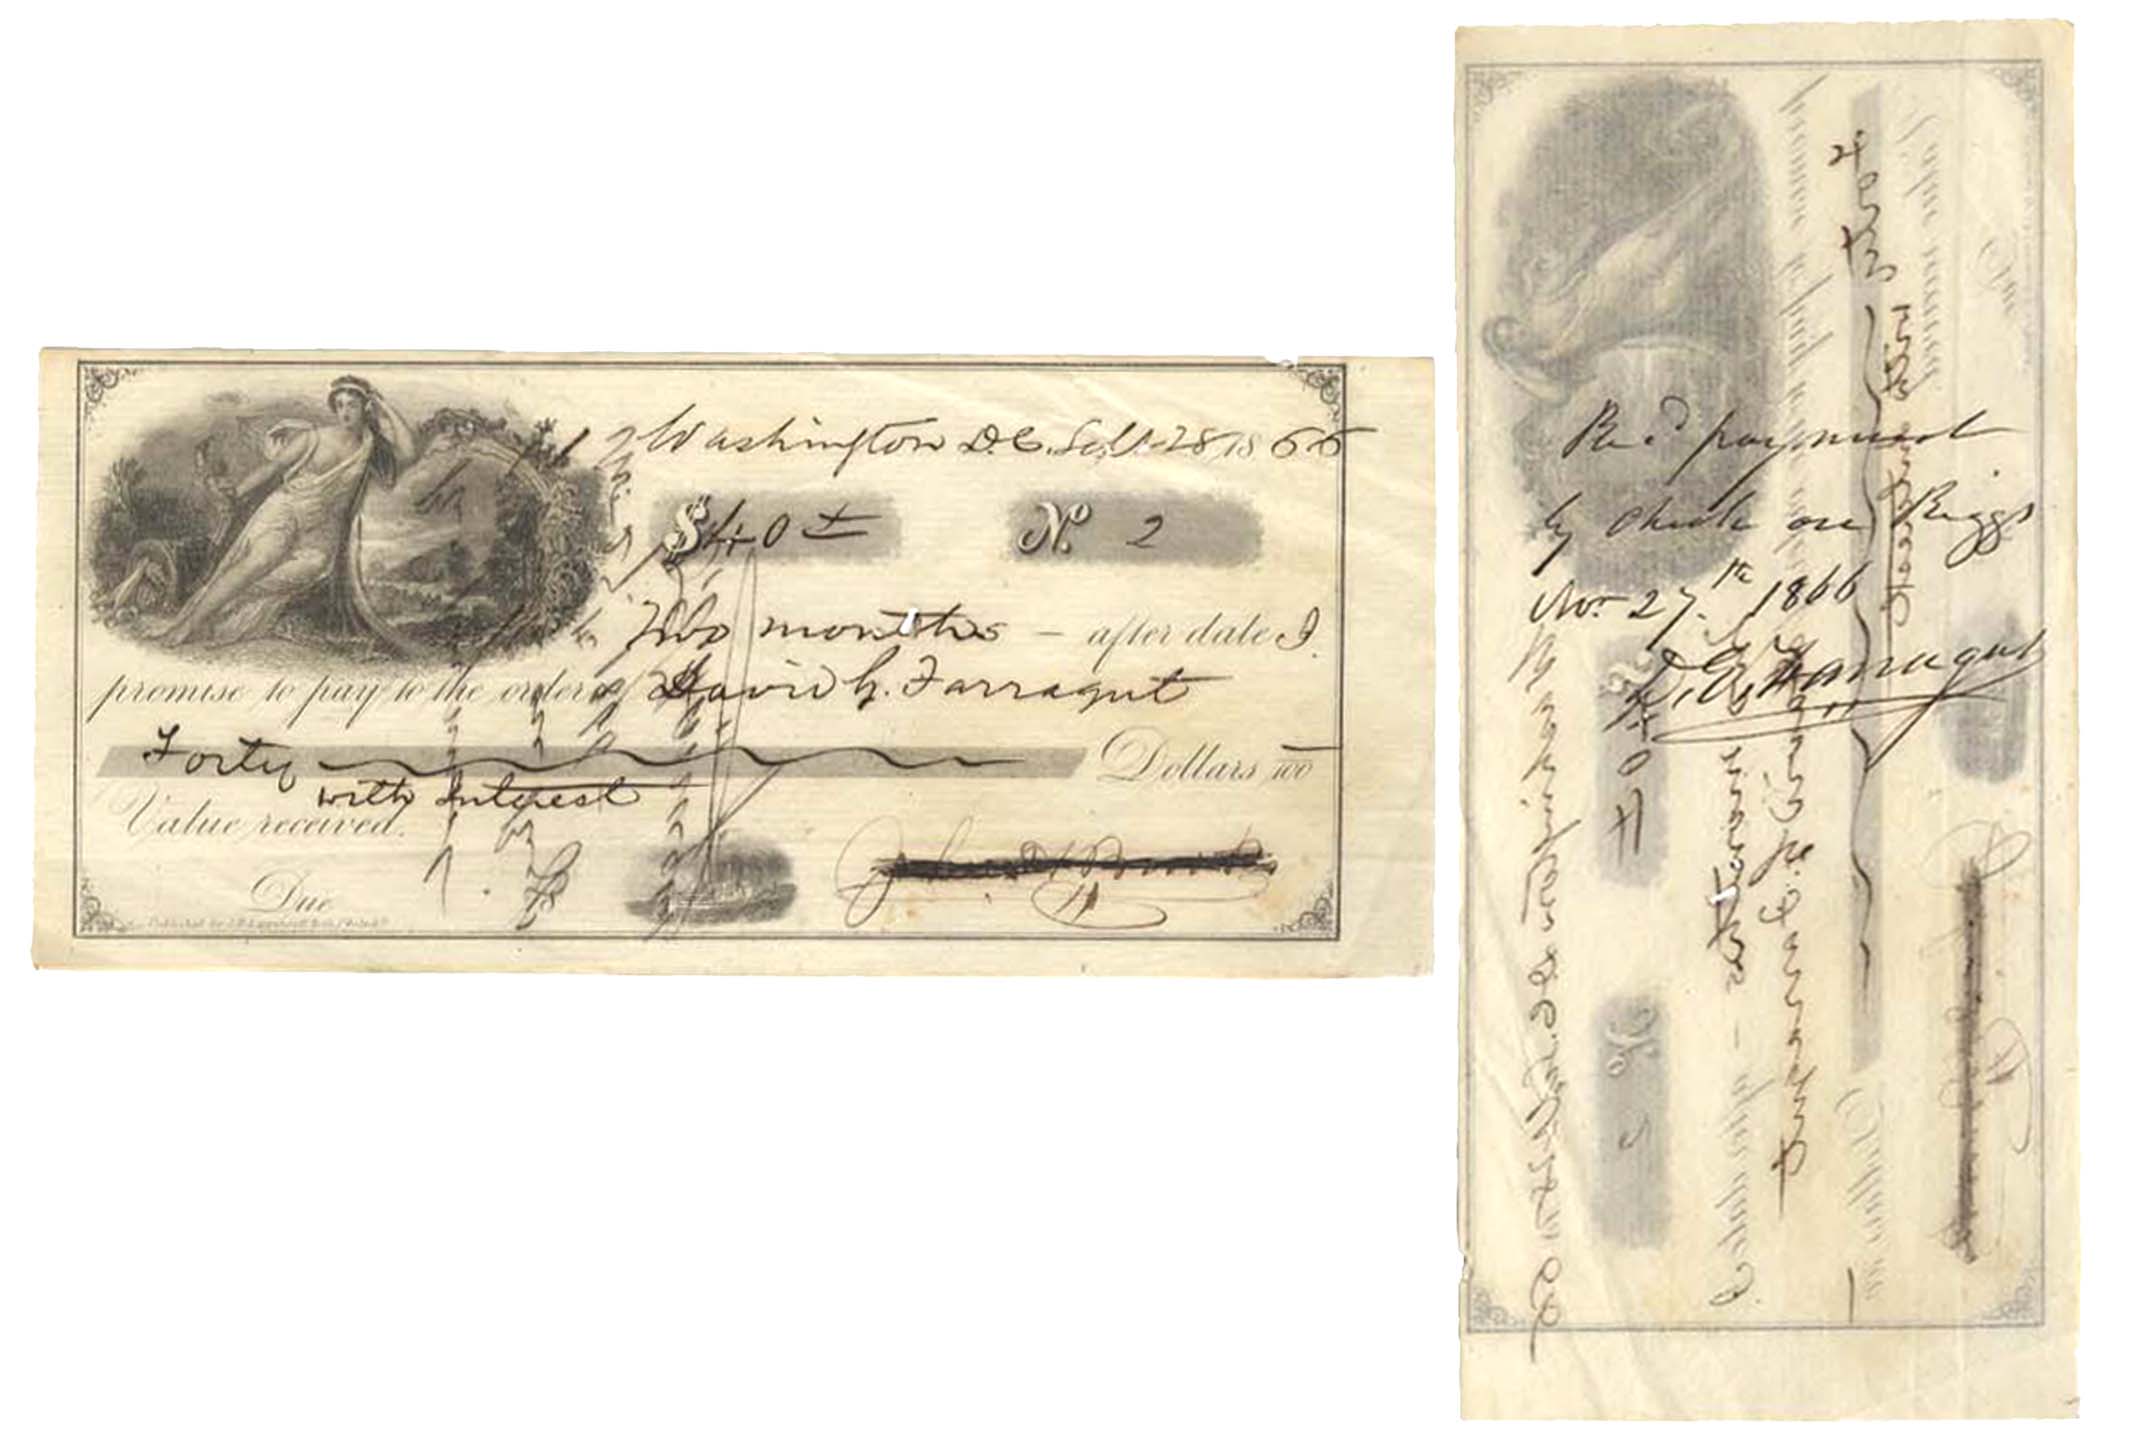 Washington D.C. Sept. 28 1866
$40
No. 2
Two months — after date I
promise to pay to the order of David G. Farragut
Forty Dollars 100
with Interest
Value received.
Due
Rec'd payment
by check on Riggs
Nov 27th 1866
D. G. Farragut